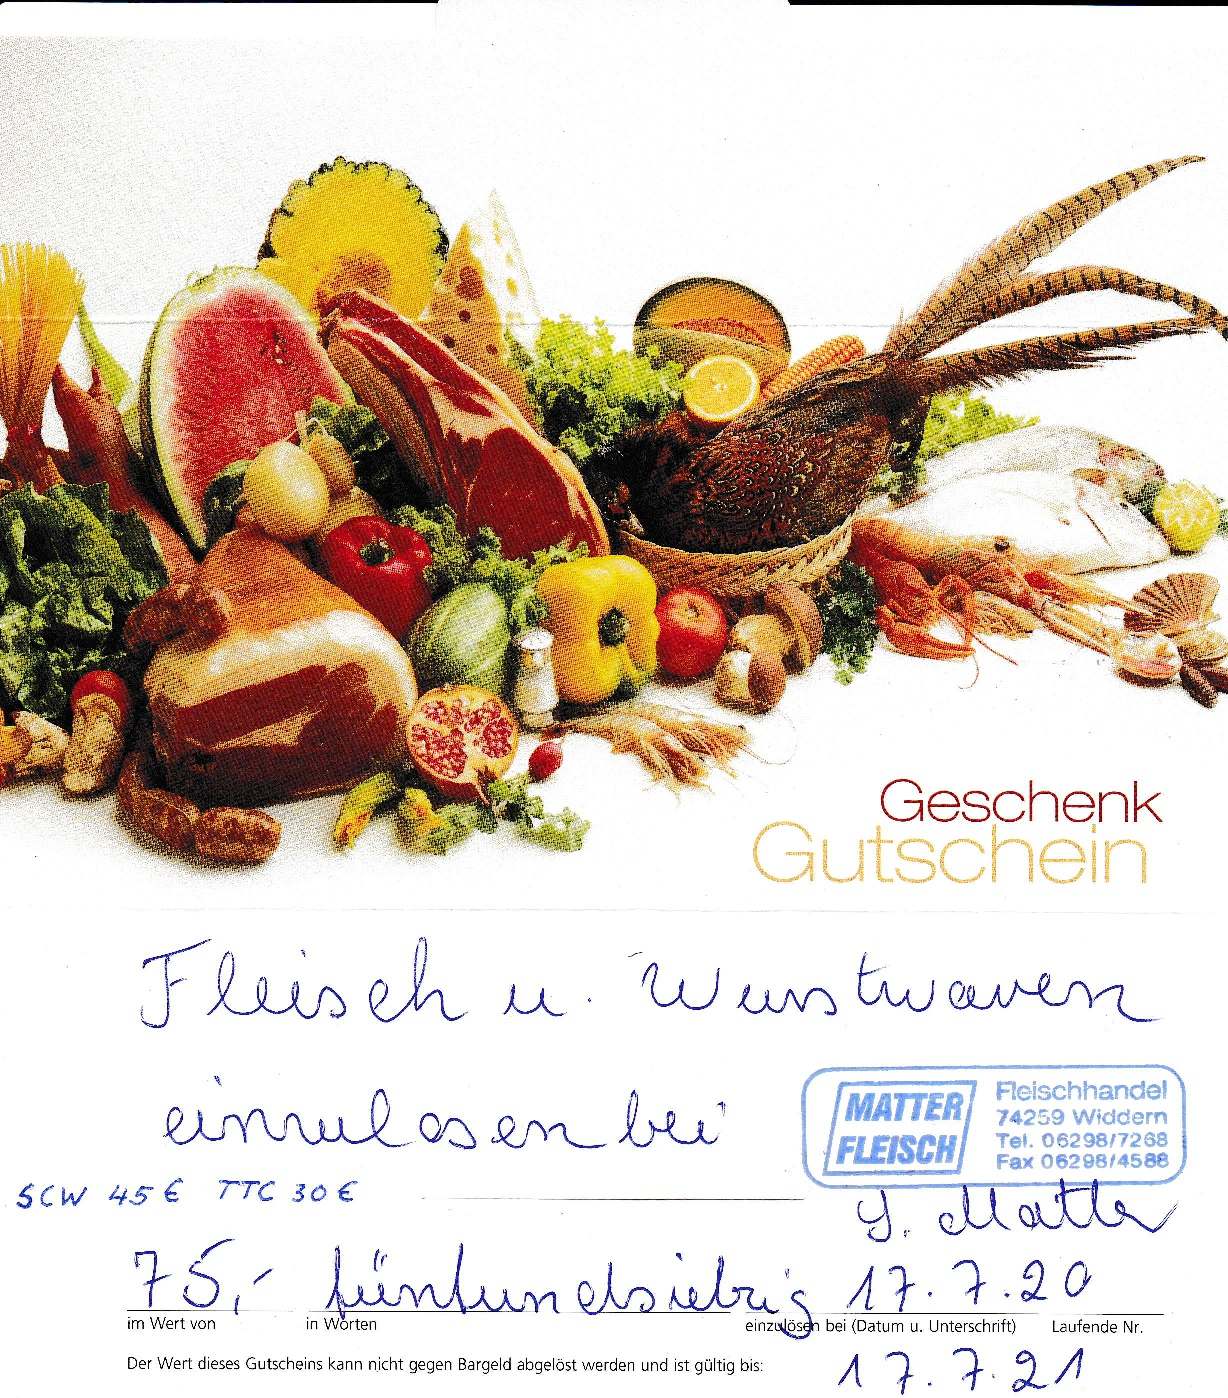 Geschenk
Gutschein
Fleisch u. Wurstwaren
einzulösen bei
MATTER
FLEISCH
Fleischhandel
74259 Widdern
Tel. 06298/7268
Fax 06298/4588
SCW 45 € TTC 30 €
S. Matter
75,- fünfundsiebzig 17.7.20
im Wert von in Worten einzulösen bei (Datum u. Unterschrift) Laufende Nr.
Der Wert dieses Gutscheins kann nicht gegen Bargeld abgelöst werden und ist gültig bis: 17.7.21